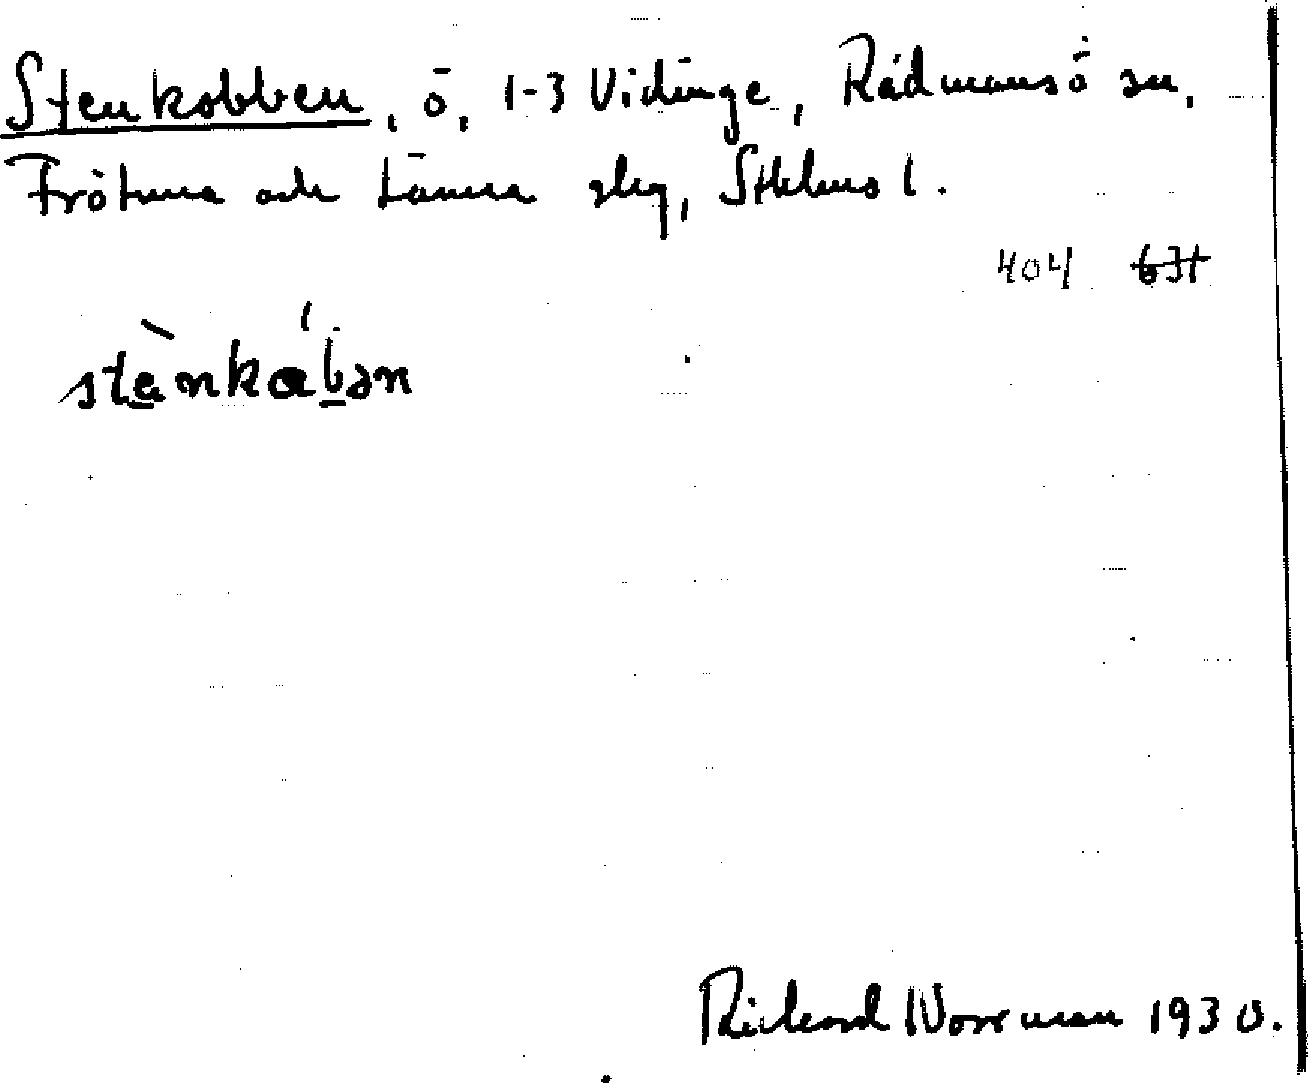 Stenkobben, ö, 1-3 Vidinge, Rådmansö sn,
Frötuna och Länna slg, Sthlms l.
404 631
stènkåb̲ən
Rickard Norrman 1930.